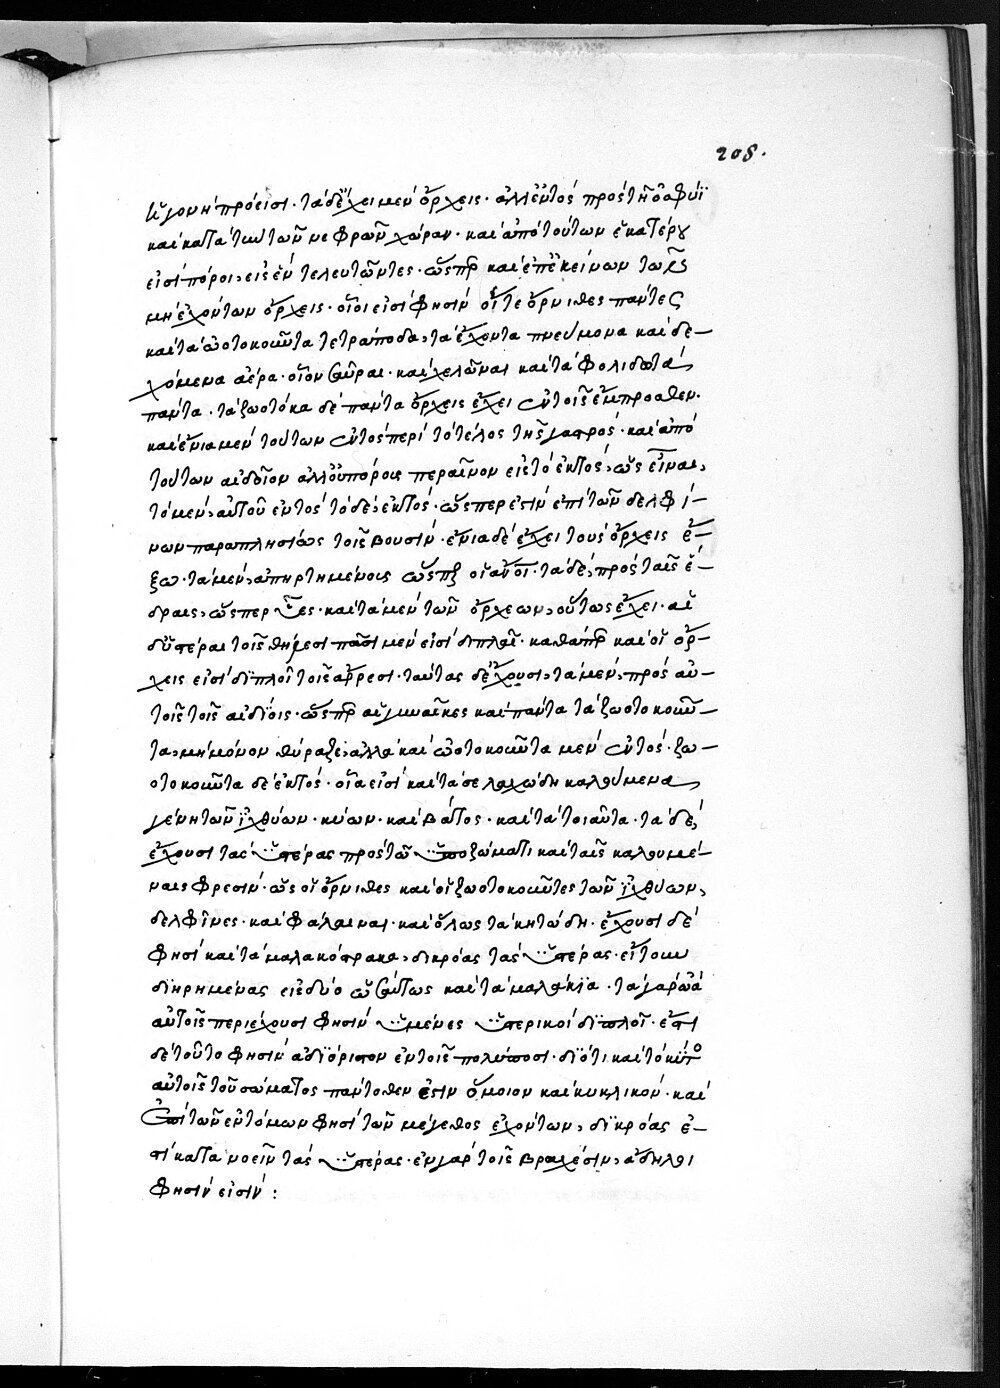 208.
ἡ γονὴ πρόεισι· τὰ δὲ ἔχει μὲν ὄρχεις· ἀλλ' ἐντὸς πρὸς τῇ ὀσφύϊ
καὶ κατὰ τὴν τῶν νεφρῶν χώραν· καὶ ἀπὸ τούτων ἑκατέρου
εἰσὶ πόροι, εἰς ἓν τελευτῶντες· ὥσπερ καὶ ἐπ' ἐκείνων τῶν
μὴ ἐχόντων ὄρχεις· οἷοί εἰσί φησιν οἵ τε ὄρνιθες πάντες
καὶ τὰ ὠοτοκοῦντα τετράποδα, τὰ ἔχοντα πνεύμονα καὶ δε-
χόμενα ἀέρα· οἷον σαῦραι· καὶ χελῶναι καὶ τὰ φολιδωτὰ
πάντα· τὰ ζωοτόκα δὲ πάντα ὄρχεις ἔχει ἐν τοῖς ἔμπροσθεν·
καὶ ἔνια μὲν τούτων ἐντὸς περὶ τὸ τέλος τῆς γαστρός· καὶ ἀπὸ
τούτων αἰδοῖον ἀλλ' οὐ πόρους περαῖνον εἰς τὸ ἐκτός, ὡς εἶναι,
τὸ μὲν, αὐτοῦ ἐντὸς τὸ δὲ, ἐκτός· ὥσπερ ἐστὶν ἐπὶ τῶν δελφί-
νων παραπλησίως τοῖς βουσίν· ἔνια δὲ ἔχει τοὺς ὄρχεις ἔ-
ξω· τὰ μὲν, ἀπηρτημένους ὥσπερ οἱ ἄνοι· τὰ δὲ, πρὸς ταῖς ἕ-
δραις, ὥσπερ ὗες· καὶ τὰ μὲν τῶν ὄρχεων, οὕτως ἔχει· αἱ
δ' ὑστέραι τοῖς θήλεσι πᾶσι μέν εἰσι διπλαῖ· καθάπερ καὶ οἱ ὄρ-
χεις εἰσὶ διπλοῖ τοῖς ἄρρεσι· ταύτας δὲ ἔχουσι, τὰ μὲν, πρὸς αὐ-
τοῖς τοῖς αἰδοίοις· ὥσπερ αἱ γυναῖκες καὶ πάντα τὰ ζωοτοκοῦν-
τα, μὴ μόνον θύραζε, ἀλλὰ καὶ ὠοτοκοῦντα μὲν ἐντός· ζω-
οτοκοῦντα δὲ ἐκτός· οἷα εἰσὶ καὶ τὰ σελαχώδη καλούμενα
γένη τῶν ἰχθύων· κύων· καὶ βάτος· καὶ τὰ τοιαῦτα· τὰ δὲ,
ἔχουσι τὰς ὑστέρας πρὸς τῷ ὑποζώματι καὶ ταῖς καλουμέ-
ναις φρεσίν· ὡς οἱ ὄρνιθες καὶ οἱ ζωοτοκοῦντες τῶν ἰχθύων,
δελφῖνες· καὶ φάλαιναι· καὶ ὅλως τὰ κητώδη· ἔχουσι δέ
φησὶ καὶ τὰ μαλακόστρακα, δικρόας τὰς ὑστέρας· εἴτουν
διῃρημένας εἰς δύο ὡσαύτως καὶ τὰ μαλάκια· τὰ γὰρ ὠὰ
αὐτοῖς περιέχουσί φησιν ὑμένες ὑστερικοὶ διπλοῖ· ἔστι
δὲ τοῦτό φησιν ἀδιόριστον ἐν τοῖς πολύποσι· διότι καὶ τὸ κύτος
αὐτοῖς τοῦ σώματος πάντοθεν ἐστὶν ὅμοιον καὶ κυκλικόν· καὶ
ἐπὶ τῶν ἐντόμων φησὶ τῶν μέγεθος ἐχόντων, δικρόας ἐ-
στὶ κατανοεῖν τὰς ὑστέρας· ἐν γὰρ τοῖς βραχέσιν, ἄδηλοι
φησίν εἰσίν: